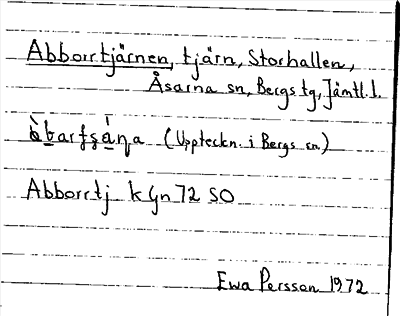 Abborrtjärnen, tjärn, Storhallen,
Åsarna sn, Bergs tg, Jämtl. l.
(Uppteckn. i Bergs sn)
Abborrtj k Gn 72 SO
Ewa Persson 1972